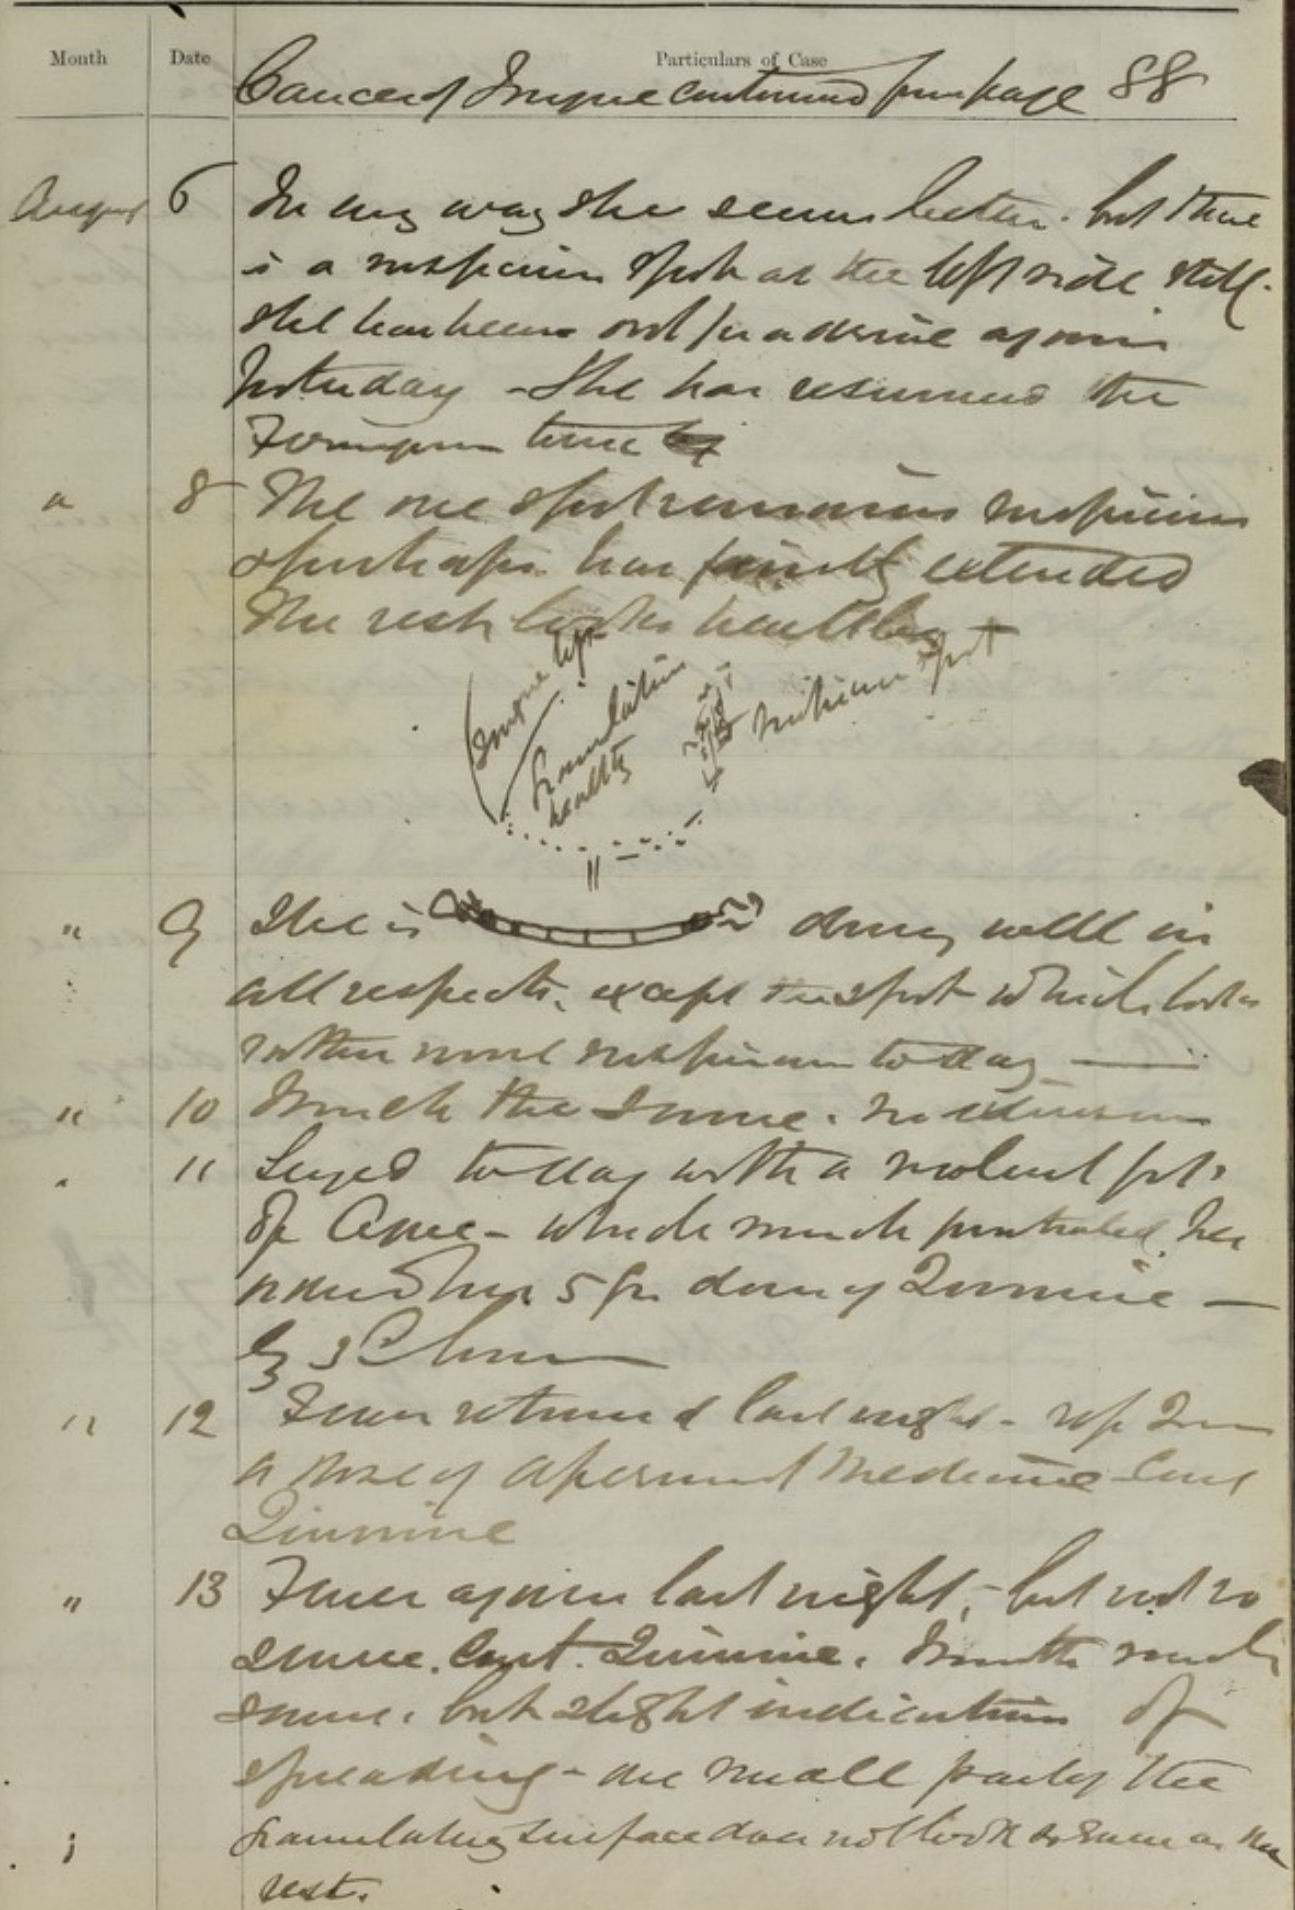 Month Date Particulars of Case
Cancer of Tongue continued from page 88
August 6 In any way she seems better. but there
is a suspicious spot at the left side still.
She has been out for a drive again
yesterday - She has resumed the
tonic
" 8 The one spot remains suspicious
& perhaps has faintly extended
The rest looks healthy
Tongue tip
Granulation
healthy
suspicious spot
" 9 She is doing well in
all respects, except the spot which looks
rather more suspicious today
" 10 Much the same. no extension
" 11 Seized today with a violent fit
of Ague - which much prostrated her
5 gr. doses of Quinine -
" 12 Fever returned last night - rep Quin
a dose of aperient medicine Cont
Quinine
" 13 Fever again last night, - but not so
severe. Cont. Quinine. Mouth much
same. but slight indication of
spreading - one small part of the
granulating surface does not look so same as the
rest.